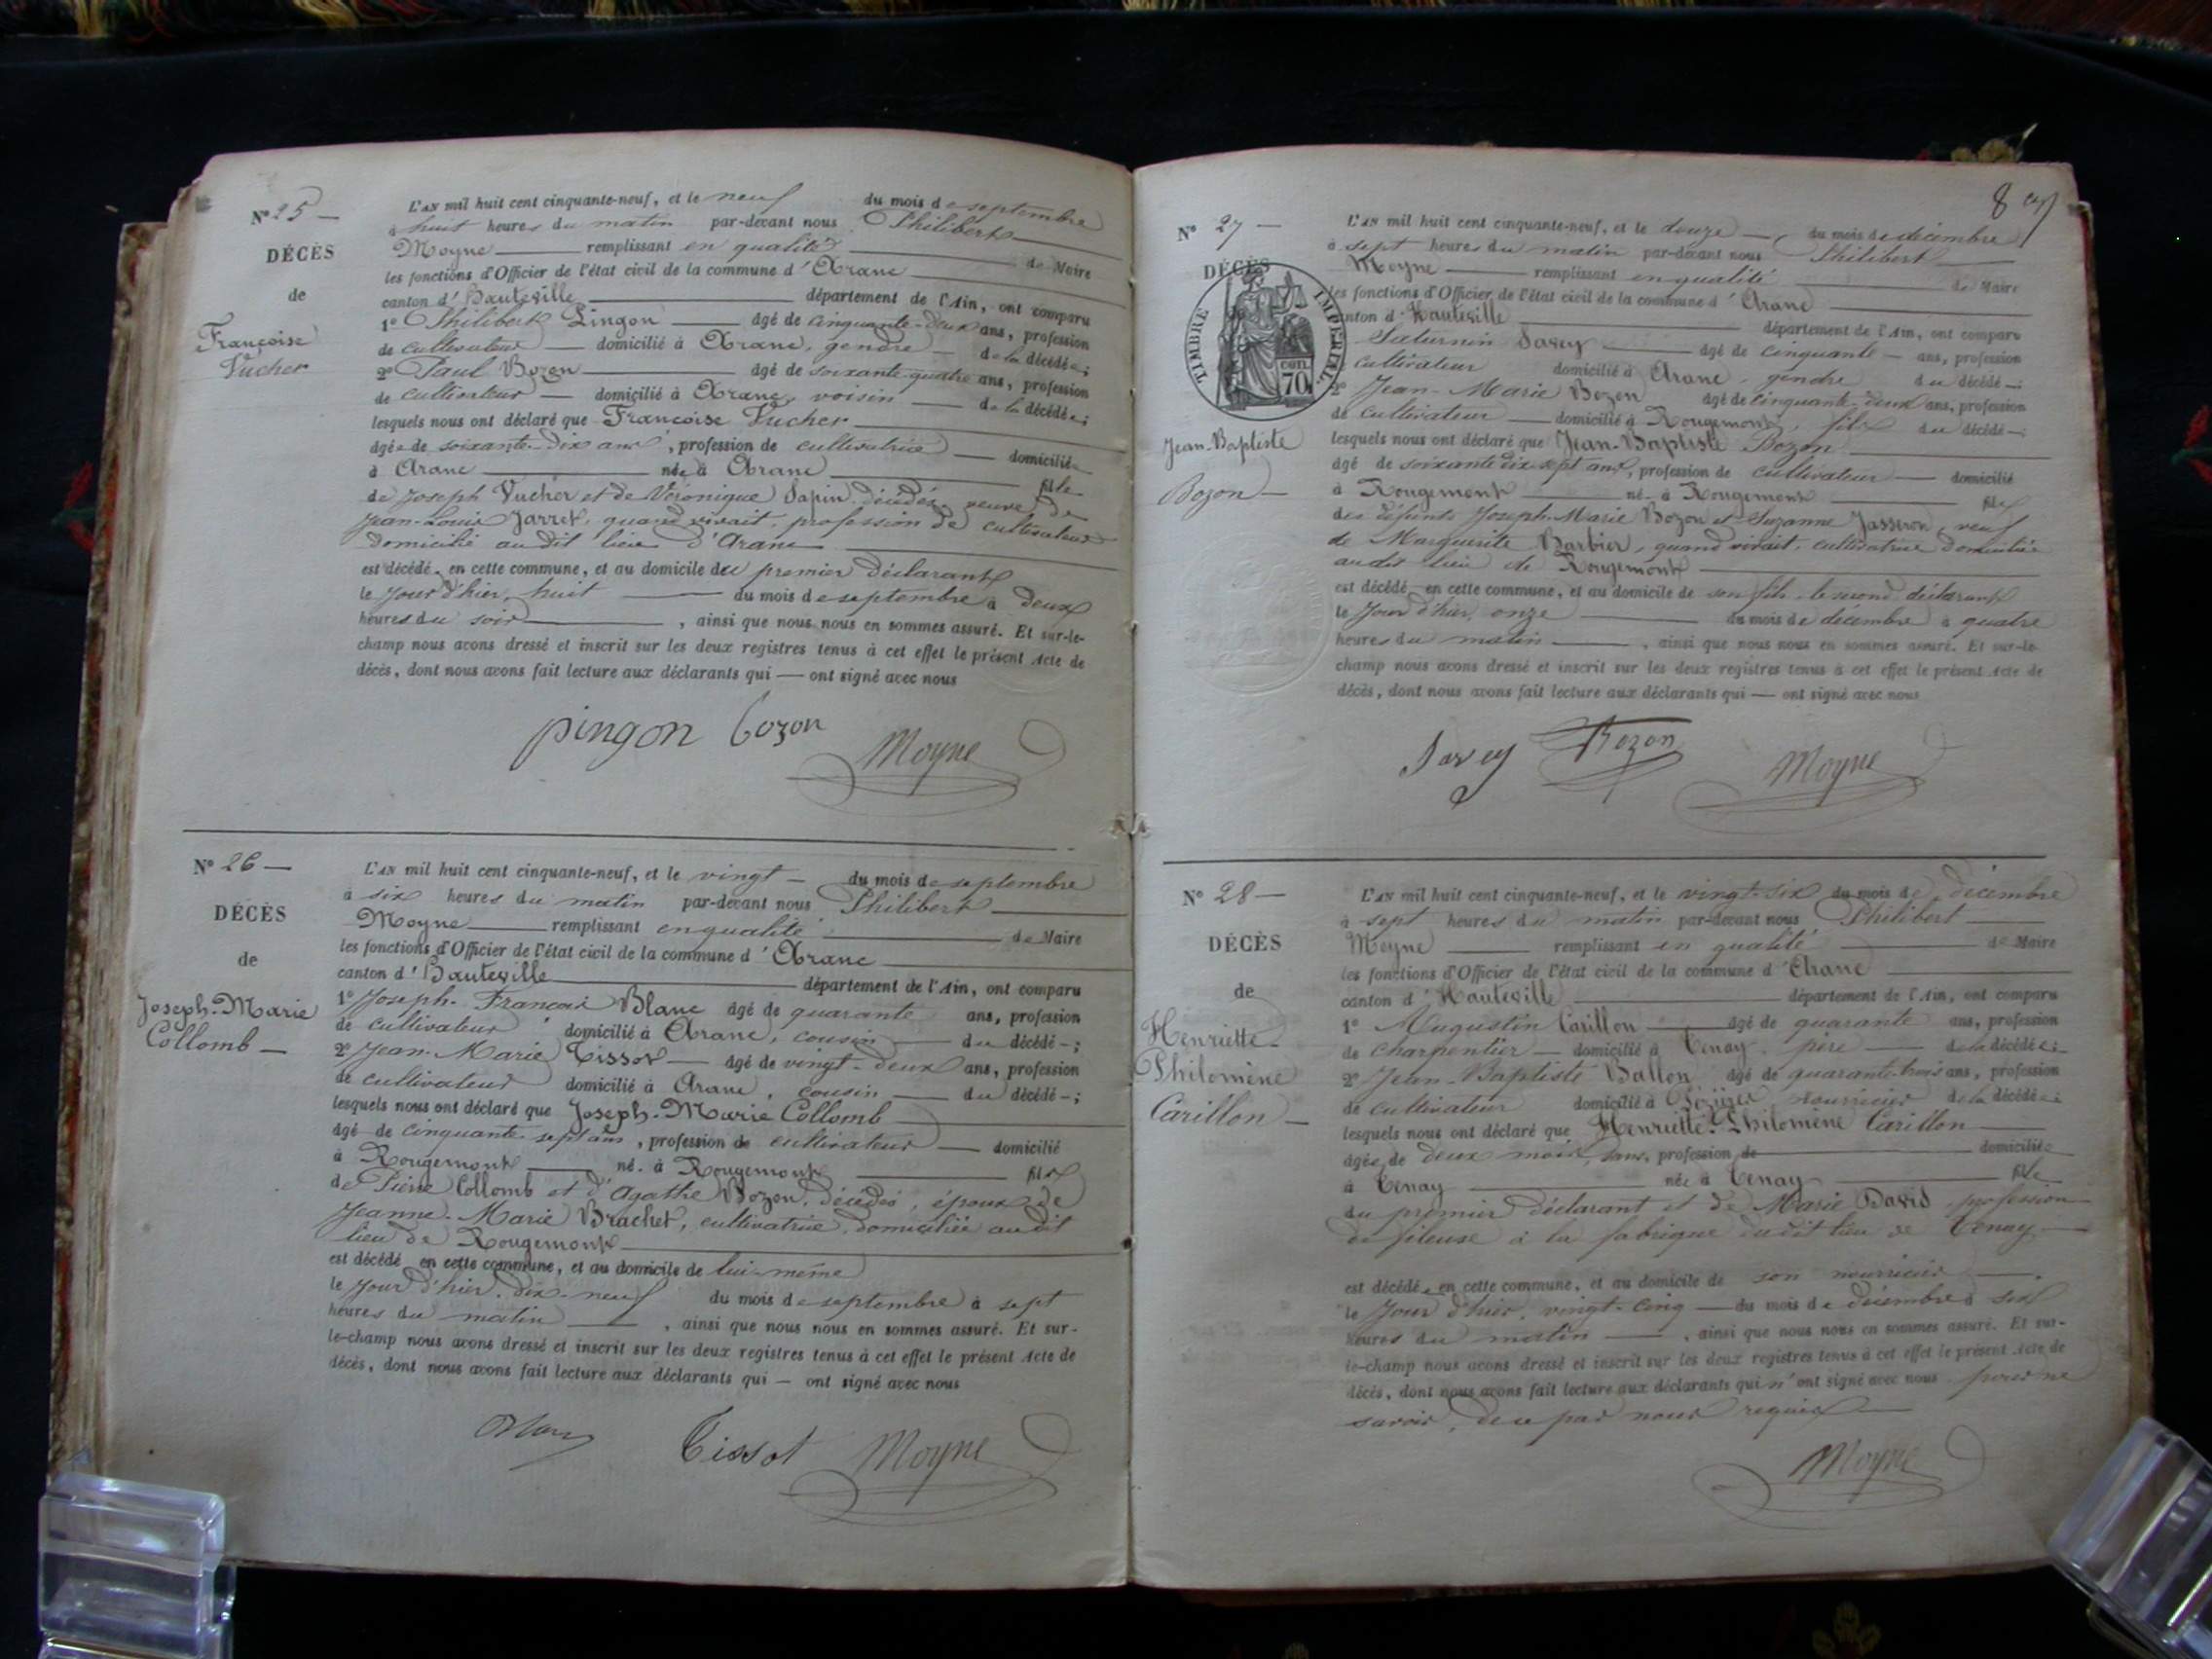 N° 25 —
DÉCÈS
de
Françoise
Vucher
L'AN mil huit cent cinquante-neuf, et le neuf du mois de septembre
à huit heures du matin par-devant nous Philibert
Moyne remplissant en qualité de Maire
les fonctions d'Officier de l'état civil de la commune d'Aranc
canton d'Hauteville département de l'Ain, ont comparu
1° Philibert Pingon âgé de cinquante-deux ans, profession
de cultivateur domicilié à Aranc, gendre de la décédée;
2° Paul Bozon âgé de soixante-quatre ans, profession
de cultivateur — domicilié à Aranc, voisin — de la décédée;
lesquels nous ont déclaré que Françoise Vucher
âgée de soixante-dix ans, profession de cultivatrice — domiciliée
à Aranc née à Aranc fille
de Joseph Vucher et de Véronique Sapin, décédés, veuve de
Jean-Louis Jarret, quand vivait, profession de cultivateur
domicilié au dit lieu d'Aranc
est décédée en cette commune, et au domicile du premier déclarant
le jour d'hier, huit du mois de septembre à deux
heures du soir, ainsi que nous nous en sommes assuré. Et sur-le-
champ nous avons dressé et inscrit sur les deux registres tenus à cet effet le présent Acte de
décès, dont nous avons fait lecture aux déclarants qui — ont signé avec nous
pingon bozon Moyne
N° 26 —
DÉCÈS
de
Joseph-Marie
Collomb —
L'AN mil huit cent cinquante-neuf, et le vingt — du mois de septembre
à six heures du matin par-devant nous Philibert
Moyne remplissant en qualité de Maire
les fonctions d'Officier de l'état civil de la commune d'Aranc
canton d'Hauteville département de l'Ain, ont comparu
1° Joseph-François Blanc âgé de quarante ans, profession
de cultivateur domicilié à Aranc, cousin — du décédé —;
2° Jean-Marie Tissot — âgé de vingt-deux ans, profession
de cultivateur domicilié à Aranc, cousin — du décédé —;
lesquels nous ont déclaré que Joseph-Marie Collomb
âgé de cinquante-sept ans, profession de cultivateur — domicilié
à Rougemont né à Rougemont fils
de Pierre Collomb et d'Agathe Bozon, décédés, époux de
Jeanne-Marie Brachet, cultivatrice, domiciliée au dit
lieu de Rougemont
est décédé en cette commune, et au domicile de lui-même
le jour d'hier, dix-neuf du mois de septembre à sept
heures du matin, ainsi que nous nous en sommes assuré. Et sur-
le-champ nous avons dressé et inscrit sur les deux registres tenus à cet effet le présent Acte de
décès, dont nous avons fait lecture aux déclarants qui — ont signé avec nous
Tissot Moyne
87
N° 27 —
DÉCÈS
TIMBRE IMPÉRIAL
70
Jean-Baptiste
Bozon —
L'AN mil huit cent cinquante-neuf, et le douze — du mois de décembre
à sept heures du matin par-devant nous Philibert
Moyne remplissant en qualité de Maire
les fonctions d'Officier de l'état civil de la commune d'Aranc
canton d'Hauteville département de l'Ain, ont comparu
Saturnin Savey âgé de cinquante — ans, profession
cultivateur domicilié à Aranc, gendre du décédé —;
2° Jean-Marie Bozon âgé de cinquante-deux ans, profession
de cultivateur — domicilié à Rougemont, fils du décédé —;
lesquels nous ont déclaré que Jean-Baptiste Bozon
âgé de soixante dix-sept ans, profession de cultivateur — domicilié
à Rougemont né à Rougemont fils
des défunts Joseph-Marie Bozon et Suzanne Jasseron, veuf
de Marguerite Barbier, quand vivait, cultivatrice domiciliée
audit lieu de Rougemont
est décédé en cette commune, et au domicile de son fils, le second déclarant
le jour d'hier, onze du mois de décembre à quatre
heures du matin, ainsi que nous nous en sommes assuré. Et sur-le-
champ nous avons dressé et inscrit sur les deux registres tenus à cet effet le présent Acte de
décès, dont nous avons fait lecture aux déclarants qui — ont signé avec nous
Savey Bozon Moyne
N° 28 —
DÉCÈS
de
Henriette-
Philomène
Carillon —
L'AN mil huit cent cinquante-neuf, et le vingt-six du mois de décembre
à sept heures du matin par-devant nous Philibert
Moyne remplissant en qualité de Maire
les fonctions d'Officier de l'état civil de la commune d'Aranc
canton d'Hauteville département de l'Ain, ont comparu
1° Augustin Carillon âgé de quarante ans, profession
de charpentier — domicilié à Tenay, père — de la décédée;
2° Jean-Baptiste Ballon âgé de quarante-trois ans, profession
de cultivateur domicilié à nourricier de la décédée;
lesquels nous ont déclaré que Henriette-Philomène Carillon
âgée de deux mois, sans profession de domiciliée
à Tenay née à Tenay fille
du premier déclarant et de Marie David profession
de fileuse à la fabrique dudit lieu de Tenay
est décédée en cette commune, et au domicile de son nourricier
le jour d'hier, vingt-cinq — du mois de décembre à six
heures du matin, ainsi que nous nous en sommes assuré. Et sur-
le-champ nous avons dressé et inscrit sur les deux registres tenus à cet effet le présent Acte de
décès, dont nous avons fait lecture aux déclarants qui n'ont signé avec nous pour ne
savoir, de ce par nous requis
Moyne